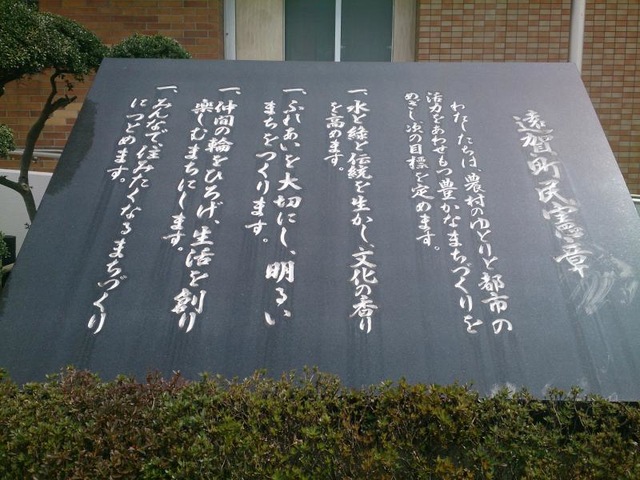 遠賀町民憲章
わたしたちは、農村のゆとりと都市の
活力をあわせもつ豊かなまちづくりを
めざし、次の目標を定めます。
一、水と緑と伝統を生かし、文化の香り
を高めます。
一、ふれあいを大切にし、明るい
まちをつくります。
一、仲間の輪をひろげ、生活を創り
楽しむまちにします。
一、みんなで、住みたくなるまちづくり
につとめます。